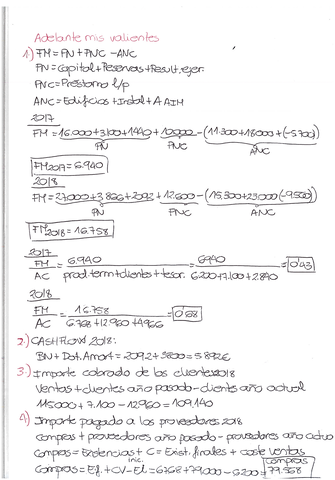 Adelante mis valientes
1) FM = PN + PNC - ANC
PN = Capital + Reservas + Result. ejer.
PNC = Préstamo l/p
ANC = Edificios + Instal + AAIM
2017
FM = 16.000 + 3.100 + 1.440 + 10.000 - (11.300 + 18.000 + (-5.700))
PN PNC ANC
FM2017 = 6.940
2018
FM = 27.000 + 3.866 + 2.092 + 12.600 - (15.300 + 23.000 (-9.500))
PN PNC ANC
FM2018 = 16.758
2017
FM = 6.940 = 6940 = 0'43
AC prod. term + clientes + tesor. 6.200 + 7.100 + 2.840
2018
FM = 16.758 = 0'68
AC 6.768 + 12.960 + 4.966
2) CASHFLOW 2018:
BN + Dot. Amort = 2092 + 3800 = 5.892€
3) Importe cobrado de los clientes 2018
Ventas + clientes año pasado - cliente año actual
115000 + 7.100 - 12960 = 109.140
4) Importe pagado a los proveedores 2018
compras + proveedores año pasado - proveedores año actua
Compras = Existencias inic. + C = Exist. finales + coste ventas
Compras = Ef. + CV - EI = 6768 + 79.000 - 6.200 = compras 79.568